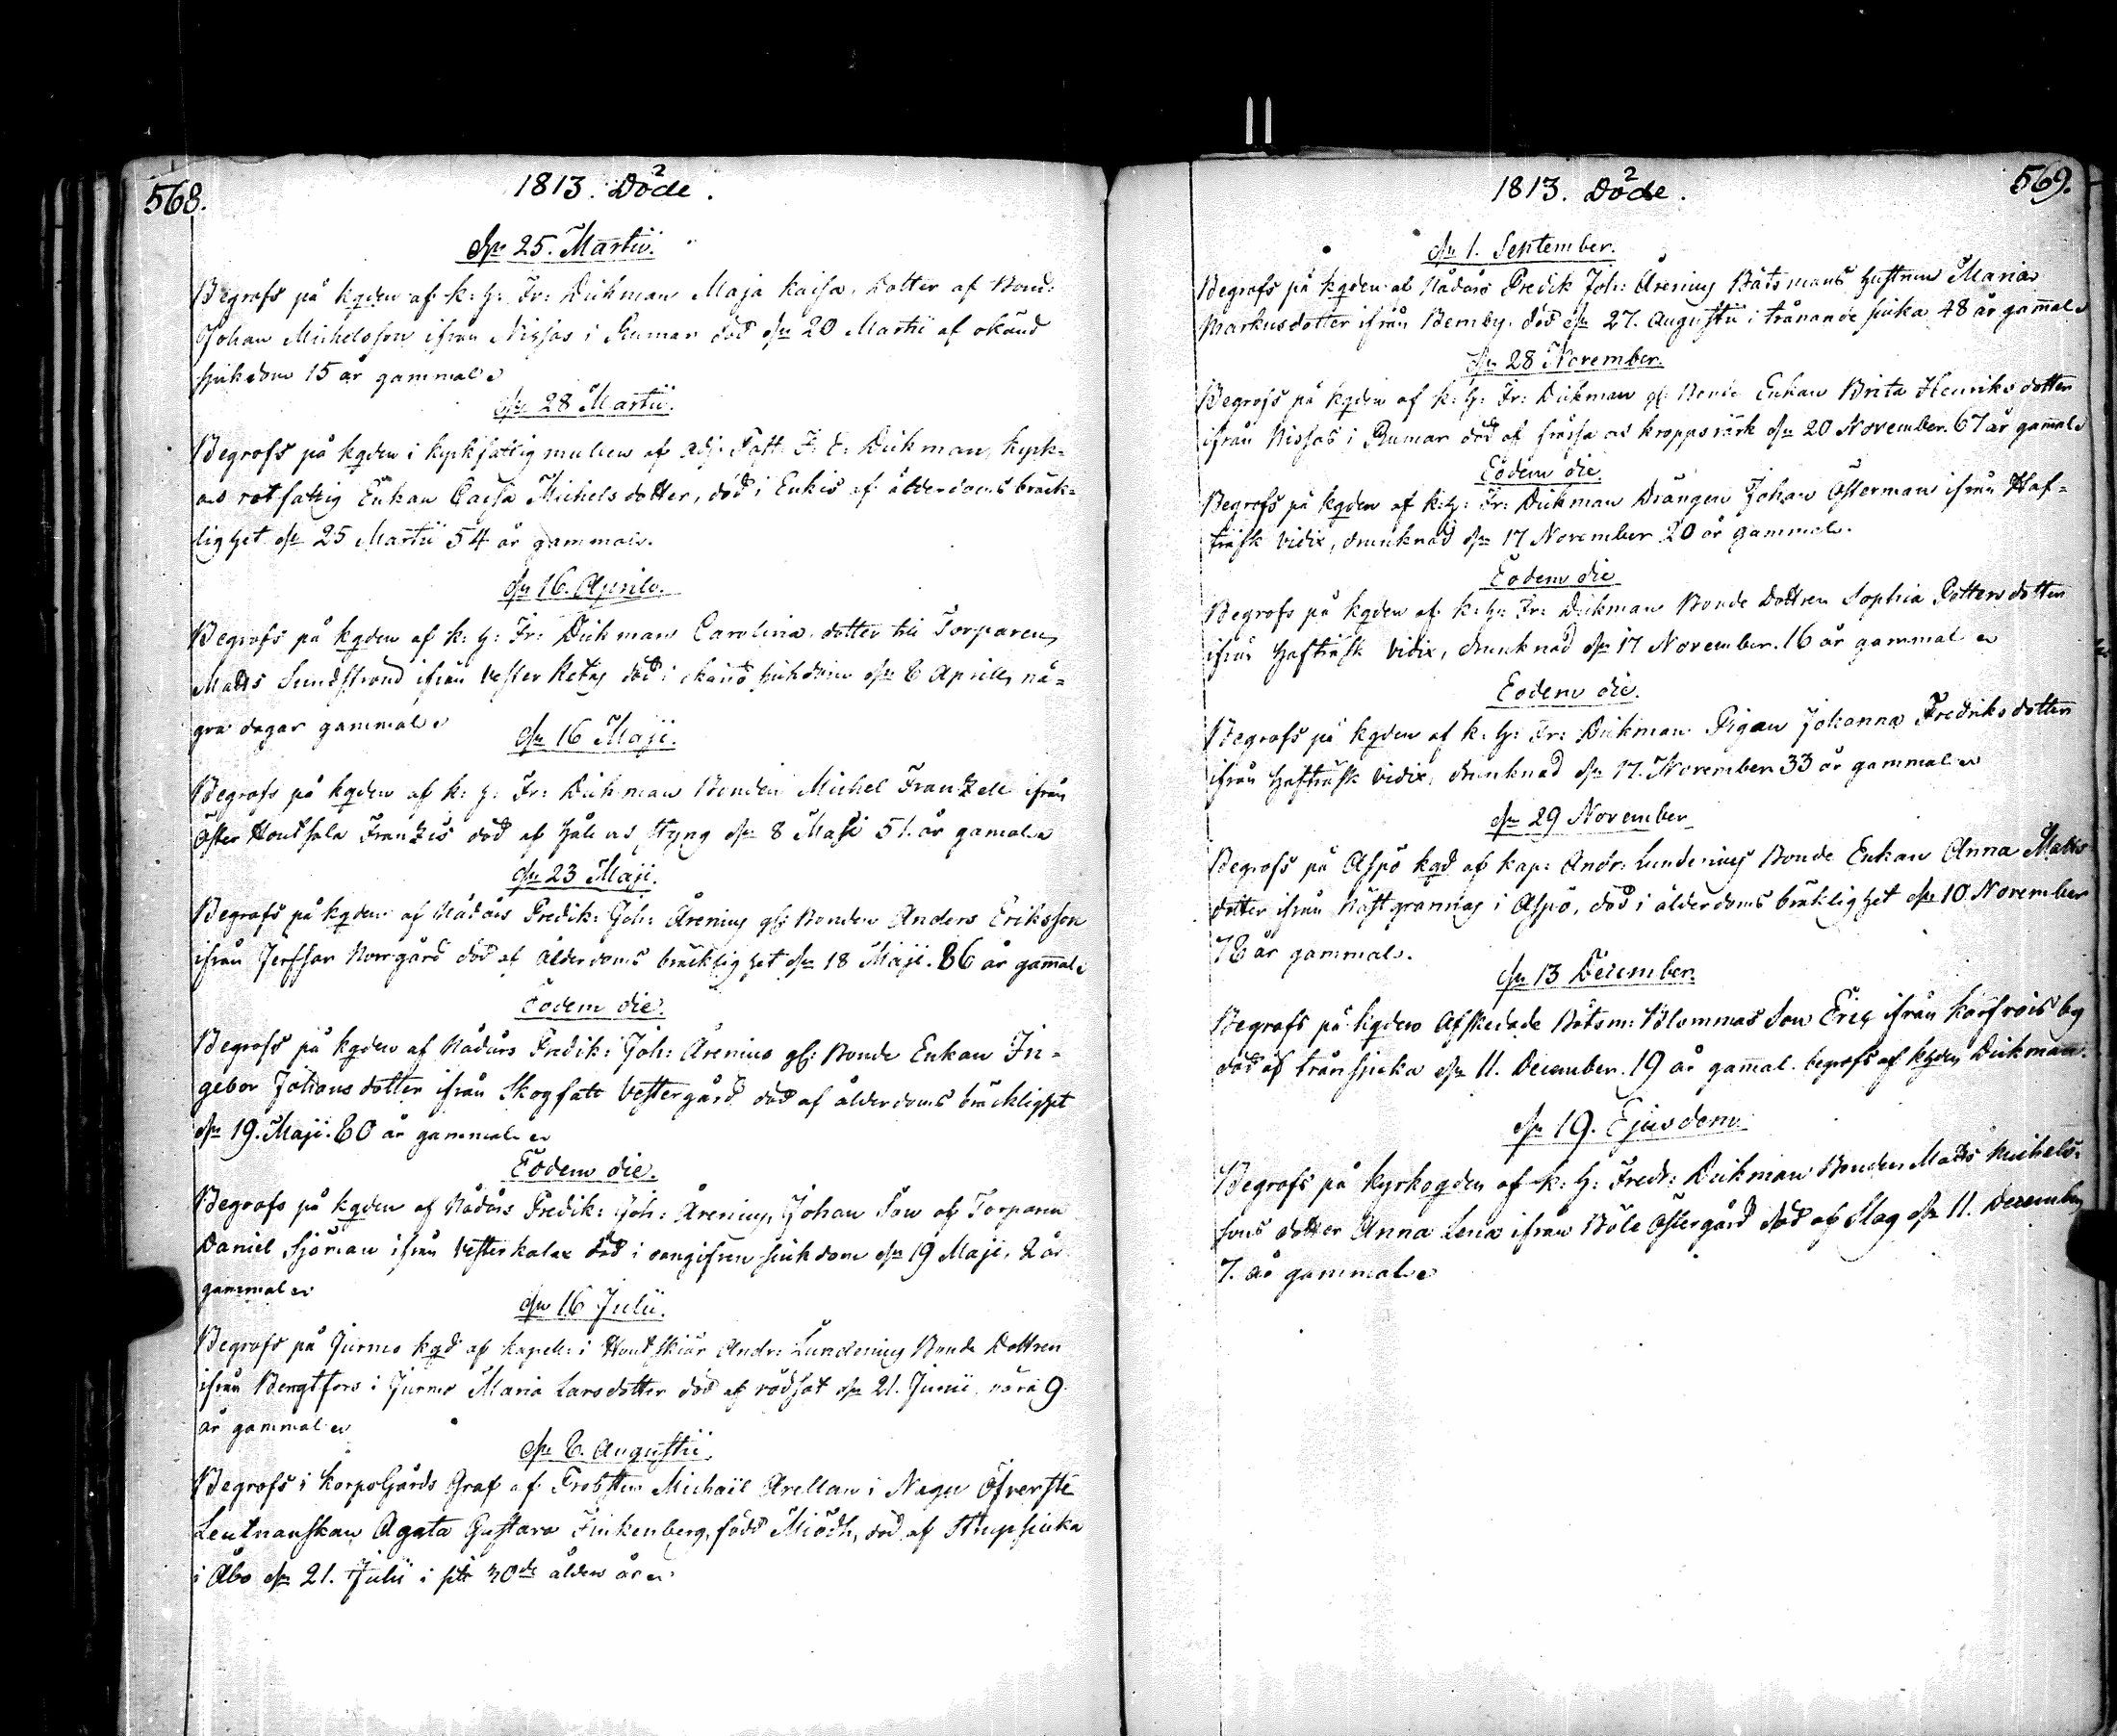 568.
1813. Döde.
d. 25. Martii.
Begrofs på kgden af k: h: Fr: Dickman Maja Kaisa, Dotter af Bond:
Johan Michelsson ifrån Nissas i Rumar död d. 20 Martii af okänd
sjukdom 15 år gammal.
d. 28 Martii.
Begrofs på kgden i kyrkfattig mullen af Adj: Past: F: E: Dickman, kyrk=
ans rotfattig Enkan Caisa Michelsdotter, död i Enkis af ålderdoms bräck=
lighet d. 25 Martii 54 år gammal.
d. 16. Aprilis.
Begrofs på kgden af k: h: Fr: Dickman Carolina dotter till Torparen
Matts Sundstrand ifrån Vester Retais död i okänd sjukdom d. 6 Aprilis nå=
gra dagar gammal.
d. 16 Maji.
Begrofs på kgden af k: h: Fr: Dickman Bonden Michel Frantzell ifrån
Öster Houtskala Frantzis död af håll och styng d. 8 Maji 51. år gamal.
d. 23 Maji.
Begrofs på kgden af Nådårs Predik: Joh: Årenius gl: Bonden Anders Eriksson
ifrån Jerfsar Norrgård död af ålderdoms bräcklighet d. 18 Maji. 86 år gamal.
Eodem die.
Begrofs på kgden af Nådårs Predik: Joh: Årenius gl: Bonde Enkan In=
gebor Johansdotter ifrån Skogsatt Vestergård död af ålderdoms bräcklighet
d. 19. Maji. 80 år gammal.
Eodem die.
Begrofs på kgden af Nådårs Predik: Joh: Årenius, Johan Son af Torparen
Daniel Sjöman ifrån Vesterkalax död i oangifven sjukdom d. 19 Maji, 2 år
gammal.
d. 16 Julii.
Begrofs på Jurmo kgd af kapell: i Houtskiär Andr: Lundenius Bonde Dottren
ifrån Bengtfors i Jurmo Maria Larsdotter död af rödsot d. 21. Junii, nära 9
år gammal.
d. 6. Augustii.
Begrofs i Korpo Gårds Graf af Probsten Michaël Avellan i Nagu Öfverste
Leutnanskan Agata Gustava Finkenberg, född Miödh, död af Strupsjuka
i Åbo d. 21. Julii i sitt 30de ålders år.
569.
1813. Döde.
d. 1. September.
Begrofs på kgden af Nådårs Predik Joh: Årenius Båtsmans hustrun Maria
Markusdotter ifrån Bemby, död d. 27. Augustii i trånande sjuka 48 år gamal.
d. 28 November.
Begrofs på kgden af k: h: Fr: Dickman gl: Bonde Enkan Brita Henriksdotter
ifrån Nissas i Rumar död af frossa och kroppsvärk d. 20 November. 67 år gamal.
Eodem die.
Begrofs på kgden af k: h: Fr: Dickman Drängen Johan Österman ifrån Haf=
träsk Vidix, drunknad d. 17 November 20 år gammal.
Eodem die
Begrofs på kgden af k: h: Fr: Dickman Bonde Dottren Sophia Pettersdotter
ifrån Hafträsk Vidix, drunknad d. 17 November. 16 år gammal
Eodem die.
Begrofs på kgden af k: h: Fr: Dickman Pigan Johanna Fredriksdotter
ifrån Hafträsk Vidix, drunknad d. 17. November 33 år gammal
d. 29 November
Begrofs på Aspö kgd af kap: Andr: Lundenius Bonde Enkan Anna Matts
dotter ifrån Nästgrannas i Aspö, död i ålderdoms bräklighet d. 10 November
76 år gammal.
d. 13 December.
Begrofs på kgden Afskedade Båtsm: Blommas Son Eric ifrån Korsrois by
död af trånsjuka d. 11. December. 19 år gamal. begrofs af khden Dickman.
d. 19. Ejusdem.
Begrofs på kyrkogden af k: h: Fredr: Dickman Bonden Matts Michels=
sons dotter Anna Lena ifrån Böle Östergård död af Slag d. 11. December
7. år gammal.